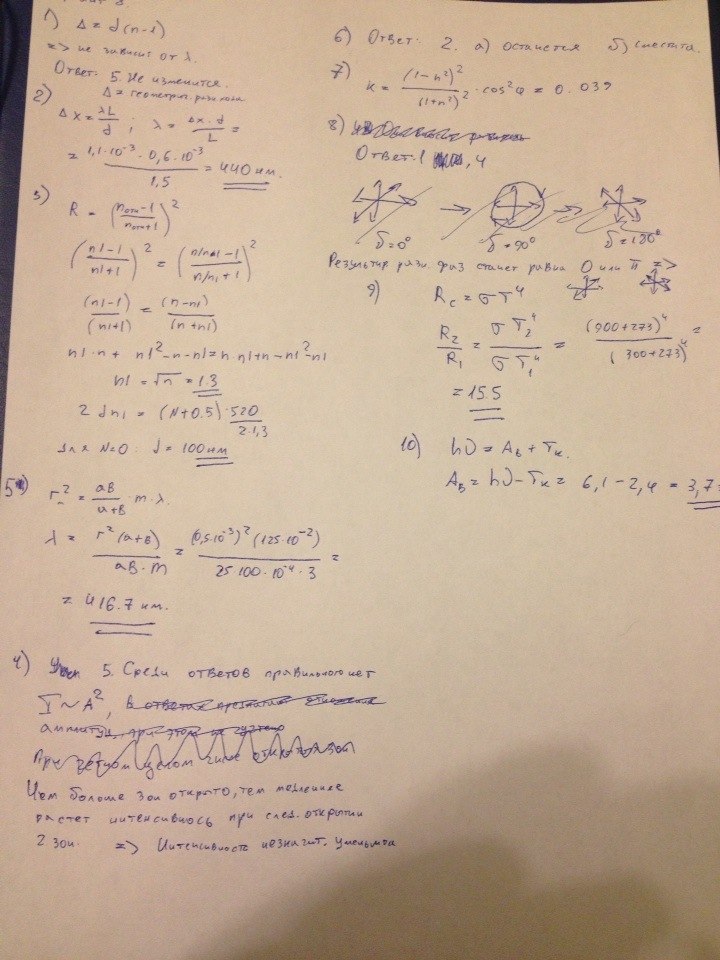 1) Δ = d(n-1)
=> не зависит от λ.
Ответ: 5. Не изменится.
Δ = геометрич. разн хода
2) Δx = λL/d ; λ = Δx·d/L =
= 1,1·10⁻³·0,6·10⁻³/1,5 = 440 нм.
3) R = ((nотн-1)/(nотн+1))²
((n1-1)/(n1+1))² = ((n/n1-1)/(n/n1+1))²
(n1-1)/(n1+1) = (n-n1)/(n+n1)
n1·n + n1²-n-n1 = n·n1+n-n1²-n1
n1 = √n = 1.3
2 dn1 = (N+0.5)·520/2·1,3
Для N=0: d = 100 нм
5) r² = aB/(a+B) · m·λ.
λ = r²(a+B)/aB·m = (0,5·10⁻³)²(125·10⁻²)/25·100·10⁻⁴·3 =
= 416.7 нм.
4) 5. Среди ответов правильного нет
I~A²,
Чем больше зон открыто, тем медленнее
растет интенсивнось при след. открытии
2 зон. => Интенсивность незначит. уменьшиа
6) Ответ: 2. а) останется б) сместита.
7) k = (1-n²)²/(1+n²)² · cos²φ = 0.039
8)
Ответ: 1, 4
δ=0° δ=90° δ=180°
Результир разн фаз станет равна 0 или π =>
9) Rc = σT⁴
R2/R1 = σT2⁴/σT1⁴ = (900+273)⁴/(300+273)⁴ =
= 15.5
10) hν = Aв + Tк.
Aв = hν-Tк = 6,1-2,4 = 3,7